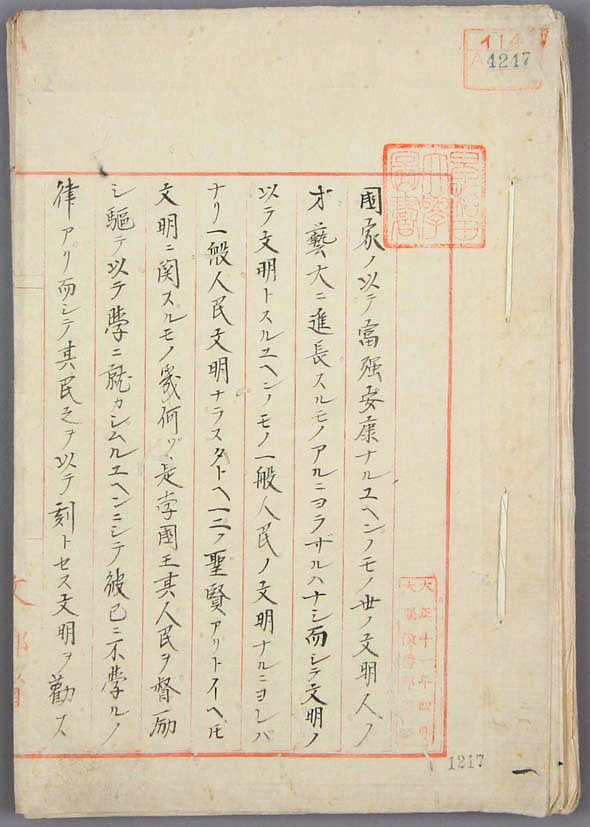 114
A 4217
國家ノ以テ富强安康ナルユヘンノモノ世ノ文明人ノ
才藝大ニ進長スルモノアルニヨラザルハナシ而シテ文明ノ
以テ文明トスルユヘンノモノ一般人民ノ文明ナルニヨレバ
ナリ一般人民文明ナラスタトヘ一二ノ聖賢アリトイヘ𪜈
文明ニ関スルモノ幾何ソ是孛國王其人民ヲ督励
シ驅テ以テ學ニ就カシムルユヘンニシテ彼已ニ不學ルノ
律アリ而シテ其民之ヲ以テ刻トセス文明ヲ勸ス
文部省
大正十一年四月
1217